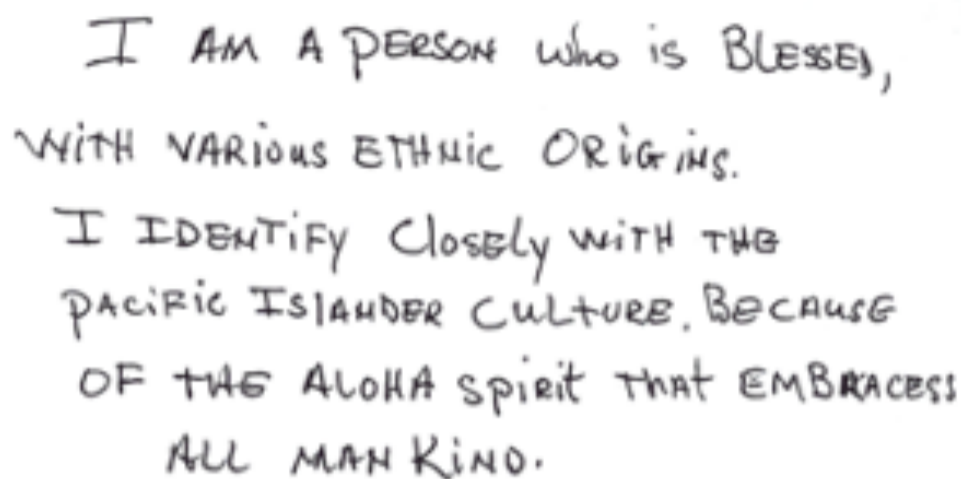 I AM A PERSON who is BLESSED,
WITH VARious ETHNic ORiGiNS.
I IDENTiFY Closely WiTH THE
PACiFic ISlANDER CULTURE. BECAUSE
OF THE ALOHA Spirit THAT EMBRACESS
ALL MAN KiND.